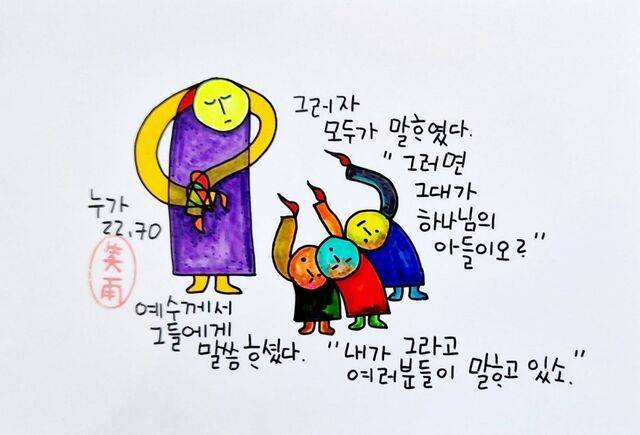 그러자
모두가 말ᄒᆞ였다.
"그러면
그대가
하나님의
아들이오?"
누가
22,70
笑雨
예수께서
그들에게
말씀ᄒᆞ셨다.
"내가 그라고
여러분들이 말ᄒᆞ고 있소."